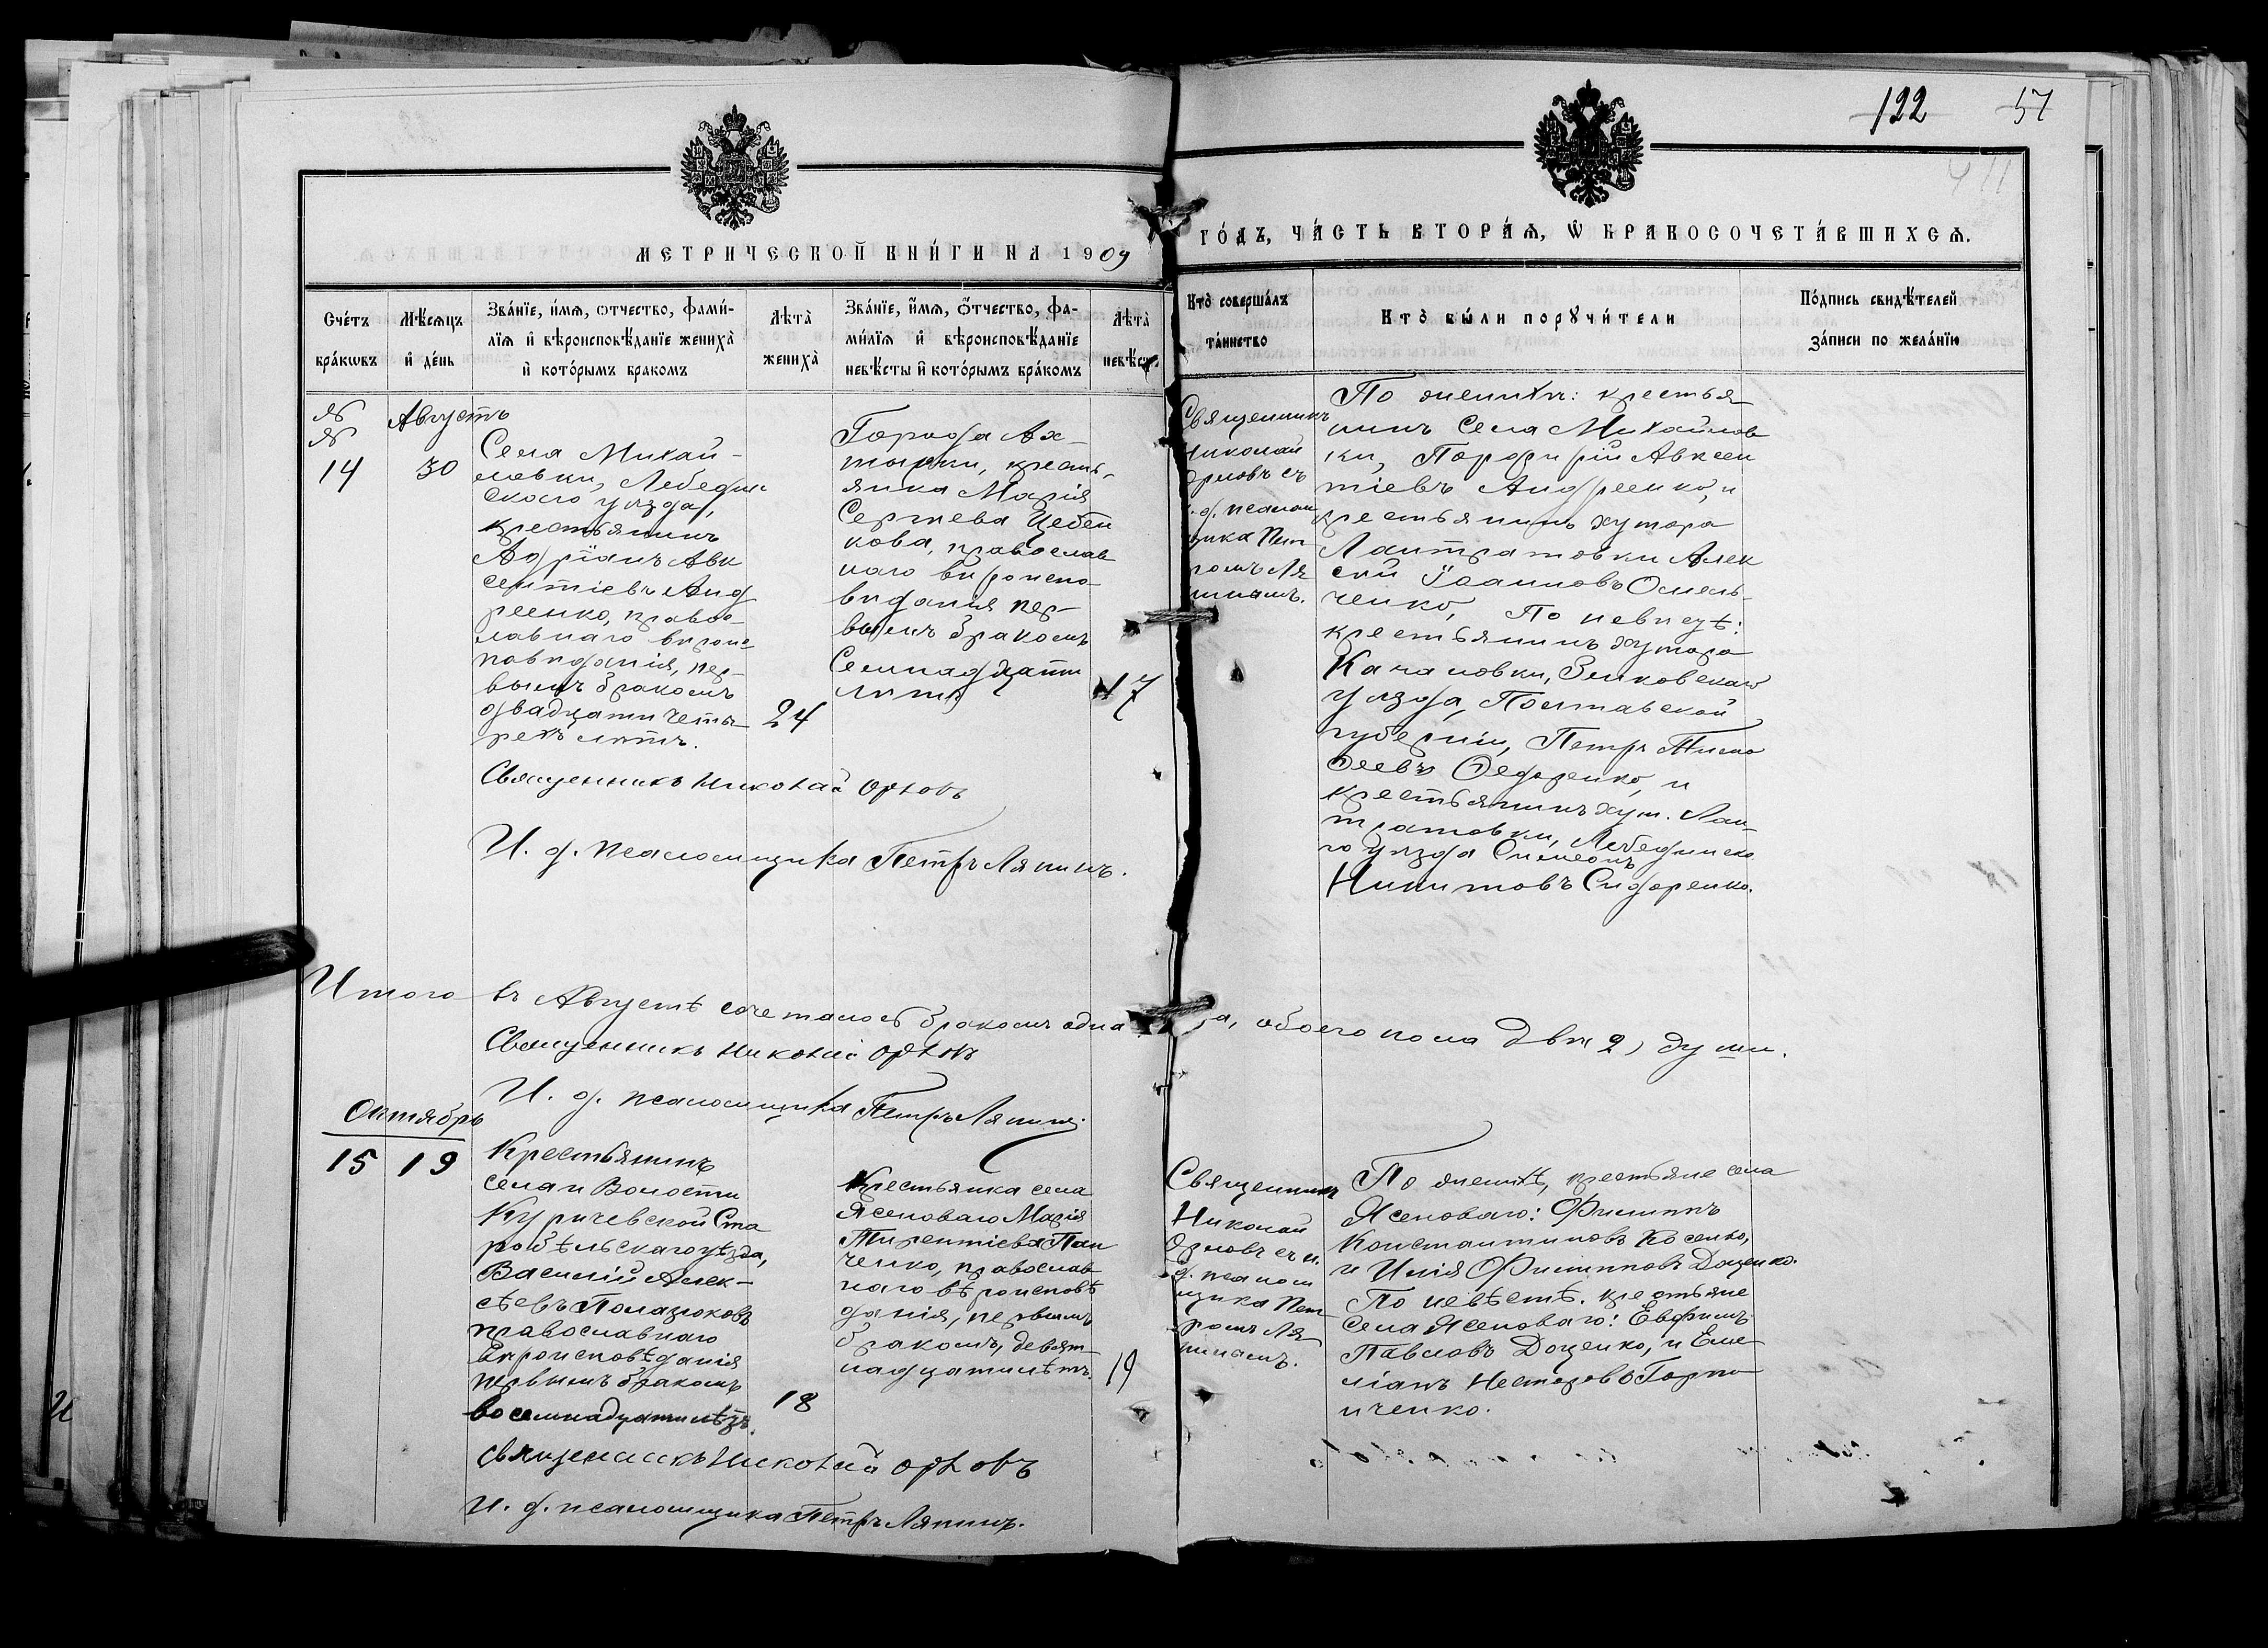 122 57
411
МЕТРИЧЕСКОЙ КНИ́ГИ НА 1909
ГО́ДЪ, ЧА́СТЬ ВТОРА́Ѧ, Ѽ БРАКОСОЧЕТА́ВШИХСѦ.
Сче́тъ бра́кѡвъ
Мѣ́сѧцъ и҆ де́нь
Зва́нїе, и҆́мѧ, ѻтчество, фами́-
лїѧ и҆ вѣроисповѣ́данїе жениха̀
и҆ кото́рымъ бракомъ
Лѣта̀ жениха̀
Зва́нїе, и҆́мѧ, ѻ҆́тчество, фа-
ми́лїѧ и҆ вѣроисповѣ́данїе
невѣ́сты и҆ кото́рымъ бра́комъ
Лѣта̀ невѣ́сты
Кто̀ соверша́лъ
та́инство
Кто̀ бы́ли порꙋчи́тели
По́дпись свидѣ́телей
за́писи по жела́нїю
№ №
Августъ
14
30
Села Михай-
ловки, Лебедин-
скаго уѣзда,
крестьянинъ
Адріанъ Авк
сентіевъ Анд
реенко, правос-
лавнаго вѣроис-
повѣданія, пер-
вымъ бракомъ
двадцати четы-
рехъ лѣтъ.
24
Города Ах-
тырки, кресть-
янка Марія
Сергіева Цебен
кова, православ
наго вѣроиспо-
вѣданія пер-
вымъ бракомъ
Семнадцати
лѣтъ
17
Священникъ
Николай
Орловъ съ
и. д. псалом
щика Пет
ромъ Ля
пинымъ.
По женихѣ: крестья
нинъ Села Михайлов
ки, Порфирій Авксен
тіевъ Андреенко, и
крестьянинъ хутора
Лантратовки Алек
сѣй Іоанновъ Омель-
ченко, По невѣстѣ:
крестьянинъ хутора
Качановки, Зиньковскаго
уѣзда, Полтавской
губерніи, Петръ Тимо
ѳеевъ Ѳедоренко, и
крестьянинъ хут. Лан-
тратовки, Лебединска
го уѣзда Симеонъ
Никитовъ Сидоренко.
Священникъ Николай Орловъ
И. д. псаломщика Петръ Ляпинъ.
Итого въ Августѣ сочеталось бракомъ одна а, обоего пола двѣ (2) души.
Священникъ Николай Орловъ
И. д. псаломщика Петръ Ляпинъ.
Октябрь
15
19
Крестьянинъ
села и Волости
Куричевской Ста
робѣльскаго уѣзда,
Василій Алек-
сѣевъ Полазюковъ
православнаго
вѣроисповѣданія
первымъ бракомъ
восемнадцати лѣтъ.
18
Крестьянка села
Ясеноваго Марія
Терентіева Пан
ченко, православ
наго вѣроисповѣ
данія, первымъ
бракомъ, девят-
надцати лѣтъ.
19
Священникъ
Николай
Орловъ съ и.
д. псалом
щика Пет
ромъ Ля
пинымъ.
По женихѣ, крестьяне села
Ясеноваго: Филиппъ
Константиновъ Косенко,
и Илія Филипповъ Доценко.
По невѣстѣ. крестьяне
села Ясеноваго: Евфимъ
Павловъ Доценко, и Еме
ліанъ Несторовъ Горпи
нченко.
Священникъ Николай Орловъ
И. д. псаломщика Петръ Ляпинъ.